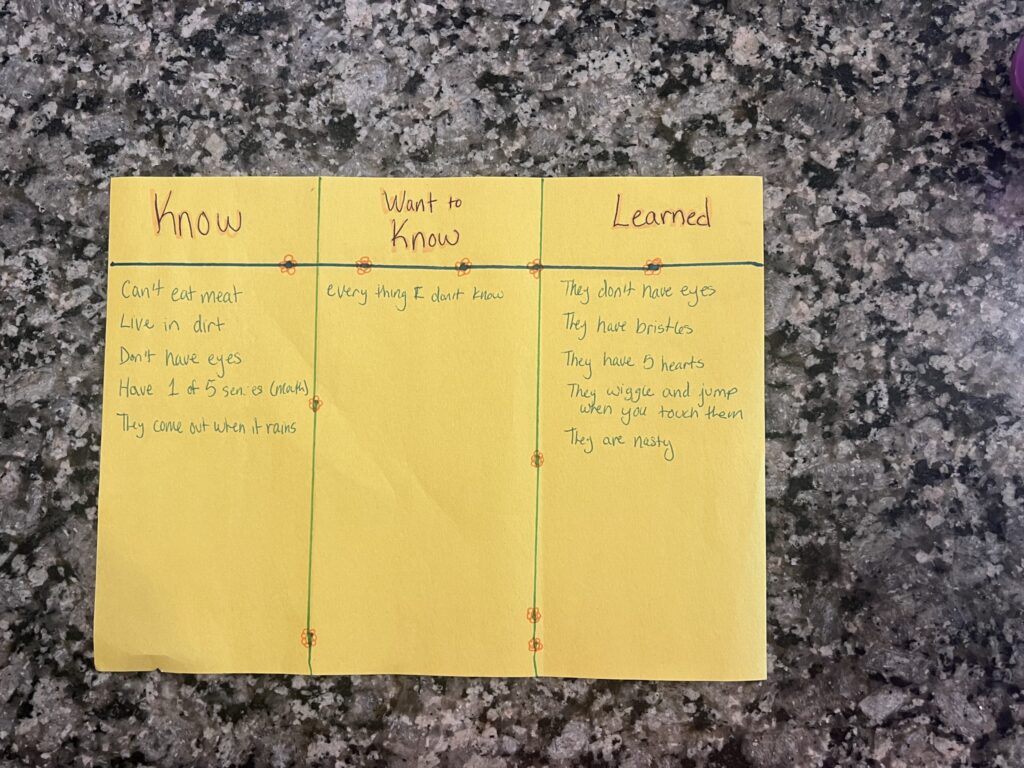 Know
Can't eat meat
Live in dirt
Don't have eyes
Have 1 of 5 senses (mouth)
They come out when it rains
Want to
Know
every thing I don't know
Learned
They don't have eyes
They have bristles
They have 5 hearts
They wiggle and jump
when you touch them
They are nasty